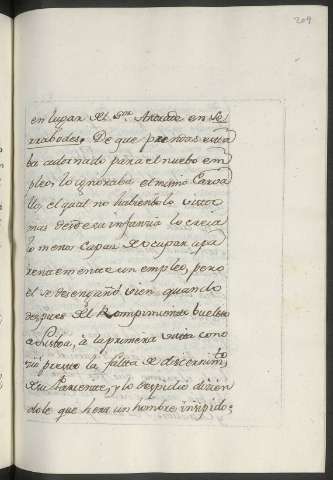 209
en lugar del Sor. Andrade en Se
De que prendas esta
ba adornado para el nuebo em
pleo, lo ignoraba el mismo Carva
llo, el qual no habiendolo visto
mas desde su infanzia lo creia
lo menos capaz de ocupar apa
rentemente un empleo, pero
el se desengañó vien quando
despues del Rompimiento buelto
a Lisboa, à la primera vista cono
zió presto la falta de discernimto
de su Pariente, y lo despidió dizien
dole que hera un hombre insipido;